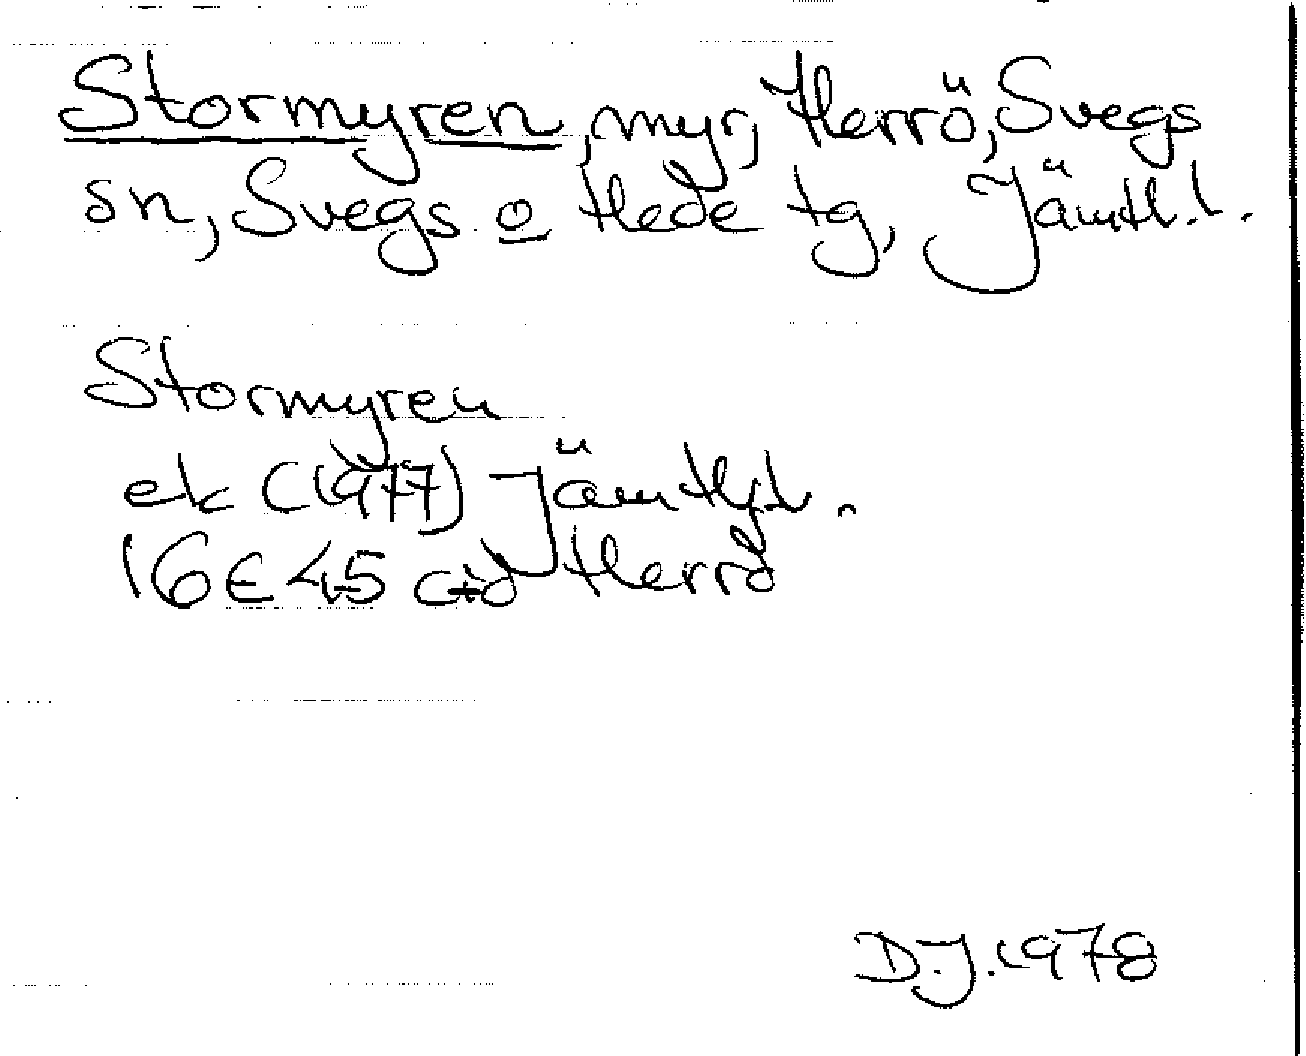 Stormyren, myr, Herrö, Svegs
sn, Svegs o Hede tg, Jämtl. l.
Stormyren
ek (1977) Jämtl. l.
16E 45 c+d Herrö
D.J. 1978